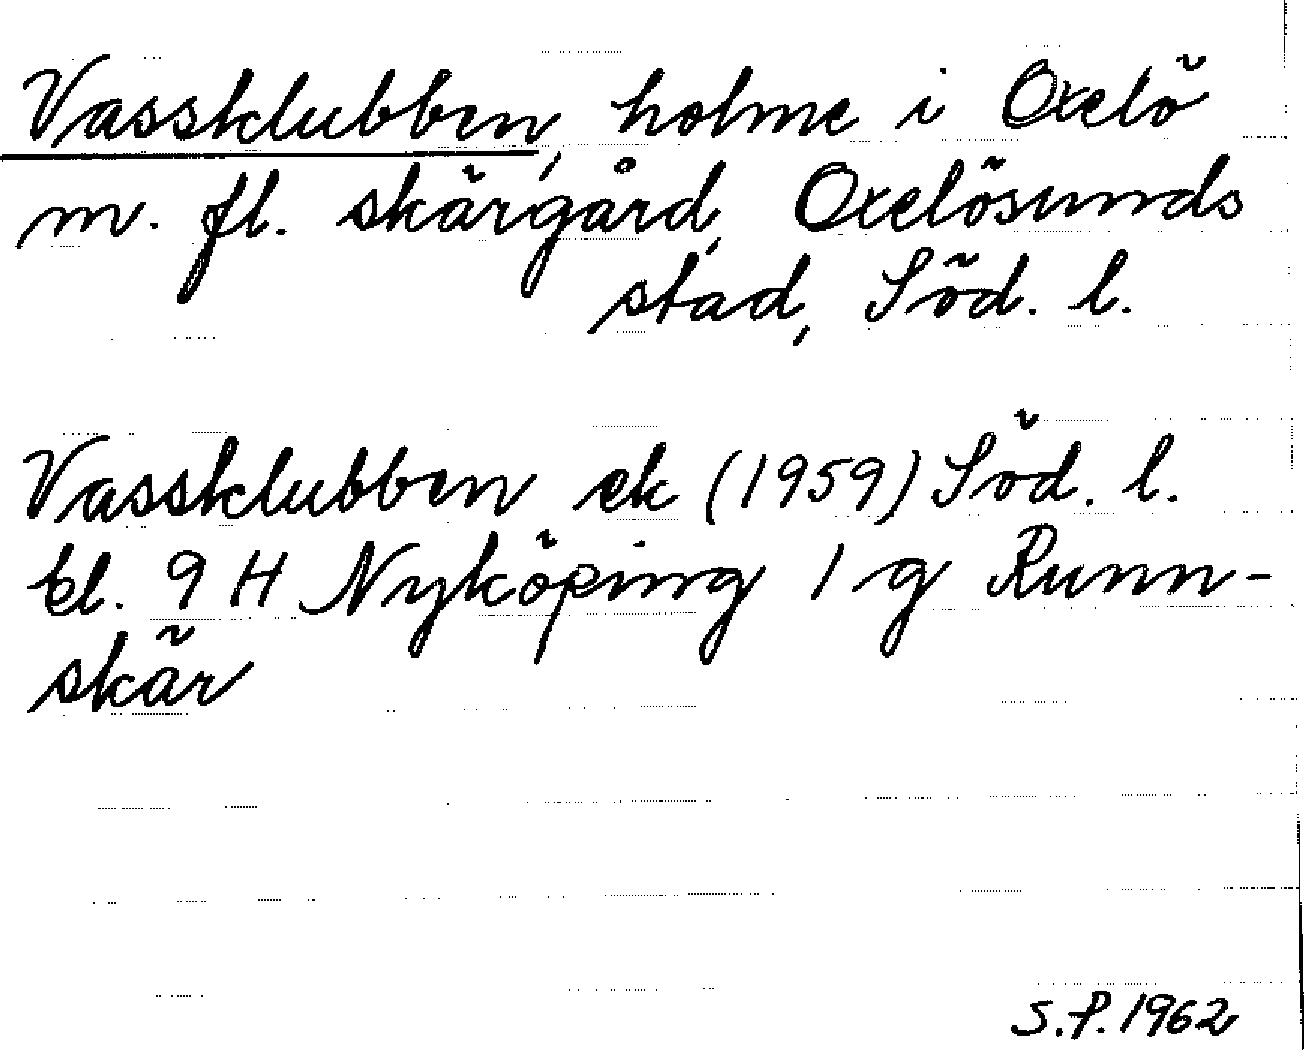 Vassklubben, holme i Oxelö
m. fl. skärgård, Oxelösunds
stad, Söd. l.
Vassklubben ek (1959) Söd. l.
bl. 9 H Nyköping 1 g Runn-
skär
S.P. 1962